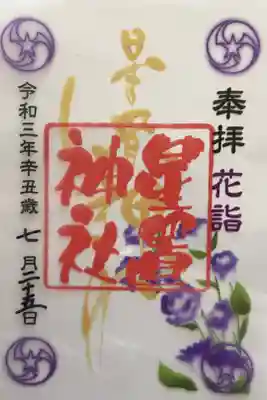 奉拝 花詣
星置
神社
令和三年辛丑歳 七月二十五日